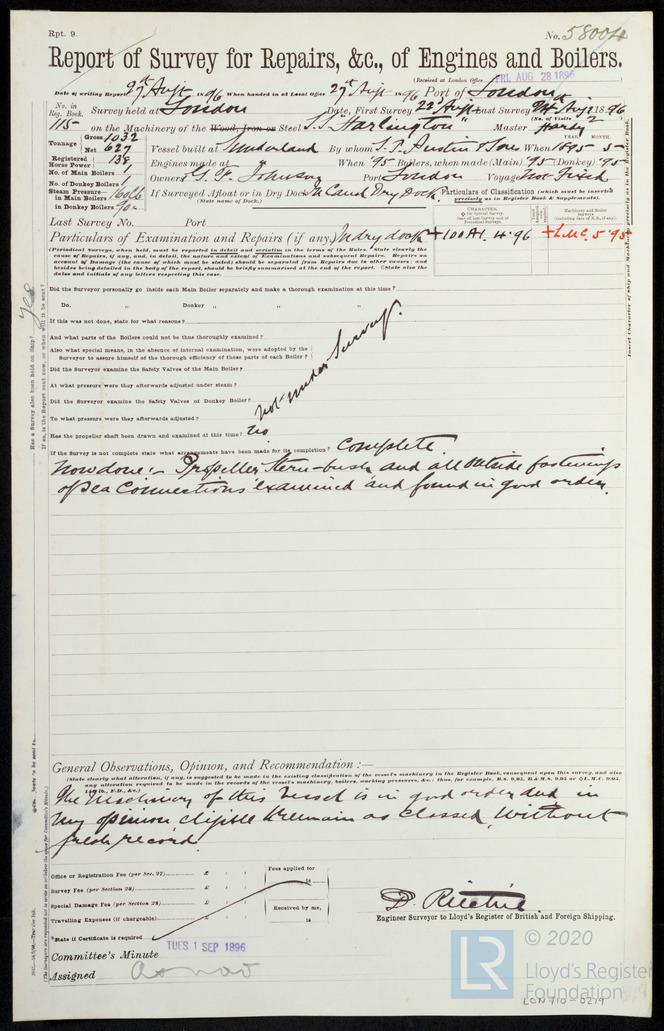 Rpt. 9.
No. 58004
Report of Survey for Repairs, &c., of Engines and Boilers.
(Received at London Office FRI. AUG 28 1896 )
Date of writing Report 27th Augt 1896 When handed in at Local Office 27th Augt 1896 Port of London
No. in Reg. Book. Survey held at London Date, First Survey 22d Augt Last Survey Augt 1896
(No. of Visits 2 )
115 on the Machinery of the Wood, Iron or Steel S.S. Harlington Master Hardy
Tonnage Gross 1032 Net 627
YEAR. MONTH.
Vessel built at Sunderland By whom S.P. Austin & Son When 1895 5
Registered Horse Power 138
Engines made at " When '95 Boilers, when made (Main) 95 (Donkey) 95
No. of Main Boilers 1
Owners G. F. Johnson Port London Voyage Not Fixed
No. of Donkey Boilers 1
If Surveyed Afloat or in Dry Dock In Canal Dry Dock.
(State name of Dock.)
Steam Pressure— in Main Boilers 160 lb
in Donkey Boilers 90
Particulars of Classification (which must be inserted precisely as in Register Book & Supplements).
Last Survey No. Port
Particulars of Examination and Repairs (if any) In dry dock +100A1. 4.96 +LMC. 5.95
(Periodical Surveys, when held, must be reported in detail and seriatim in the terms of the Rules. State clearly the
cause of Repairs, if any, and, in detail, the nature and extent of Examinations and subsequent Repairs. Repairs on
account of Damage (the cause of which must be stated) should be separated from Repairs due to other causes; and
besides being detailed in the body of the report, should be briefly summarised at the end of the report. State also the
dates and initials of any letters respecting this case.
Did the Surveyor personally go inside each Main Boiler separately and make a thorough examination at this time?
Do. " Donkey " " "
If this was not done, state for what reasons?
And what parts of the Boilers could not be thus thoroughly examined?
Also what special means, in the absence of internal examination, were adopted by the
Surveyor to assure himself of the thorough efficiency of those parts of each Boiler?
Did the Surveyor examine the Safety Valves of the Main Boiler?
At what pressure were they afterwards adjusted under steam?
Did the Surveyor examine the Safety Valves of Donkey Boiler?
To what pressure were they afterwards adjusted?
not under Survey.
Has the propeller shaft been drawn and examined at this time? No
If the Survey is not complete state what arrangements have been made for its completion? Complete
Now done:- Propeller, stern-bush and all outside fastenings
of sea connections examined and found in good order.
General Observations, Opinion, and Recommendation:—
(State clearly what alteration, if any, is suggested to be made in the existing classification of the vessel's machinery in the Register Book, consequent upon this survey, and also
any alteration required to be made in the records of the vessel's machinery, boilers, working pressures, &c.: thus, for example, B.S. 9.95, B.&M.S. 9.95 or L.M.C. 9.95,
The Machinery of this Vessel is in good order and in
my opinion eligible to remain as classed, without
fresh record.
Office or Registration Fee (per Sec. 27) £ : :
Survey Fee (per Section 28) £ : :
Special Damage Fee (per Section 28) £ : :
Travelling Expenses (if chargeable) £ : :
Fees applied for 18
Received by me, 18
*State if Certificate is required
D. Ritchie.
Engineer Surveyor to Lloyd's Register of British and Foreign Shipping.
Committee's Minute TUES 1 SEP 1896
Assigned as now
Has a Survey also been held on Ship? Yes
If so, is the Report sent now, or when will it be sent?
Insert Character of Ship and Machinery precisely as in the Register Book
LR © 2020
Lloyd's Register
Foundation
LON 710-0219